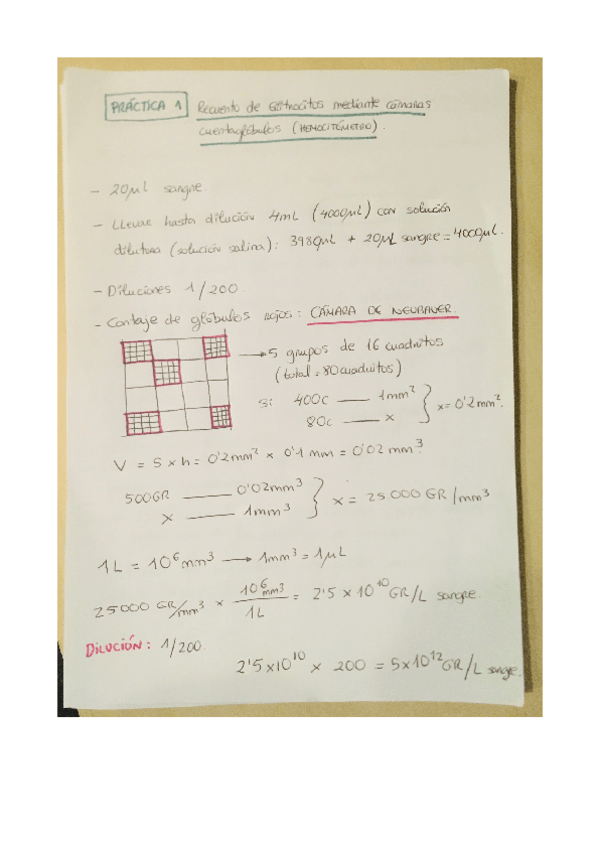 PRÁCTICA 1 Recuento de Eritrocitos mediante cámaras
cuentaglóbulos (HEMOCITÓMETRO).
- 20μl sangre.
- Llevar hasta dilución 4mL (4000μl) con solución
dilutora (solución salina): 3980μl + 20μL sangre = 4000μl.
- Diluciones 1/200.
- Contaje de glóbulos rojos: CÁMARA DE NEUBAUER.
→ 5 grupos de 16 cuadritos
(total = 80 cuadritos)
Si 400c — 1mm²
80c — x } x = 0'2mm².
V = S x h = 0'2mm² x 0'1 mm = 0'02 mm³
500GR — 0'02mm³
x — 1mm³ } x = 25.000 GR/mm³
1L = 10⁶ mm³ → 1mm³ = 1μL
25000 GR/mm³ x 10⁶mm³/1L = 2'5 x 10¹⁰ GR/L sangre.
Dilución: 1/200.
2'5x10¹⁰ x 200 = 5x10¹² GR/L sangre.